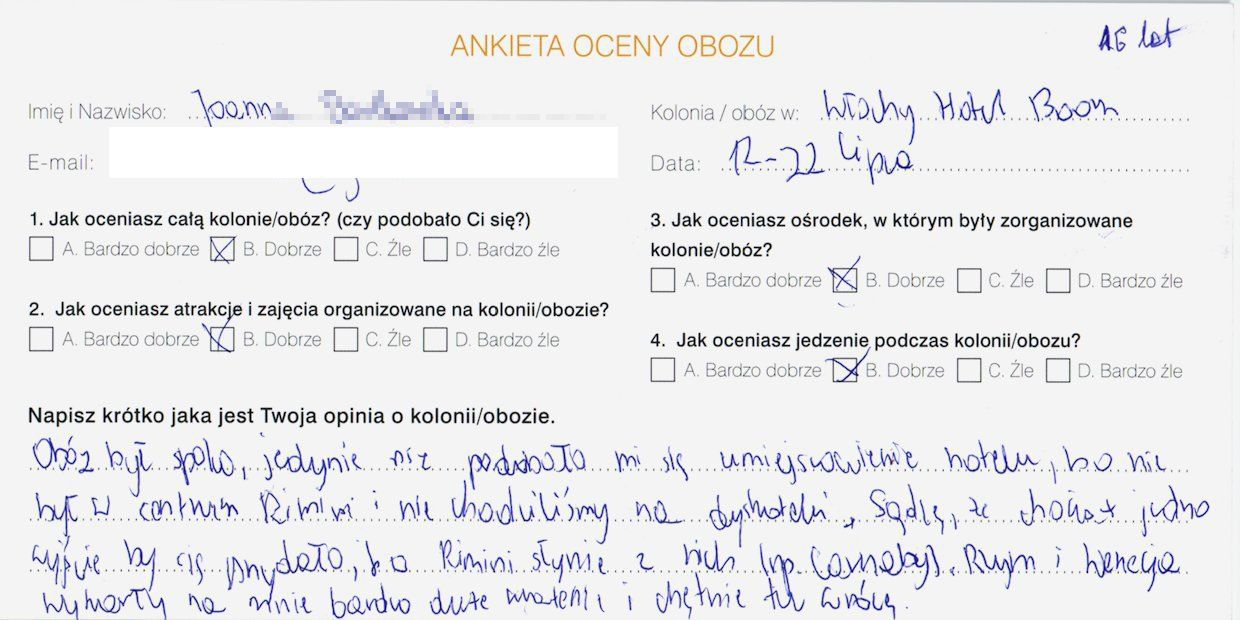 ANKIETA OCENY OBOZU
16 lat
Imię i Nazwisko: Joanna
Kolonia / obóz w: Włochy Hotel Boom
E-mail:
Data: 12-22 Lipca
1. Jak oceniasz całą kolonie/obóz? (czy podobało Ci się?)
A. Bardzo dobrze B. Dobrze C. Źle D. Bardzo źle
2. Jak oceniasz atrakcje i zajęcia organizowane na kolonii/obozie?
A. Bardzo dobrze B. Dobrze C. Źle D. Bardzo źle
3. Jak oceniasz ośrodek, w którym były zorganizowane
kolonie/obóz?
A. Bardzo dobrze B. Dobrze C. Źle D. Bardzo źle
4. Jak oceniasz jedzenie podczas kolonii/obozu?
A. Bardzo dobrze B. Dobrze C. Źle D. Bardzo źle
Napisz krótko jaka jest Twoja opinia o kolonii/obozie.
Obóz był spoko, jedynie nie podobało mi się umiejscowienie hotelu, bo nie
był w centrum Rimini i nie chodziliśmy na dyskoteki. Sądzę, że chociaż jedno
wyjście by się przydało, bo Rimini słynie z nich (np. Carnaby). Rzym i Wenecja
wywarły na mnie bardzo duże wrażenie i chętnie tu wrócę.